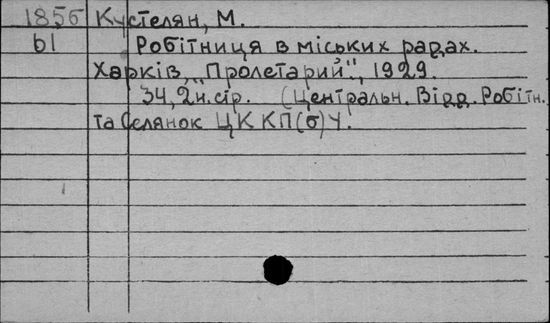 1856 Кустелян, М.
61 Робітниця в міських радах.
Харків, "Пролетарий", 1929.
34, 2н. сір. (Центральн. Відд. Робітн.
та Селянок ЦК КП(б)У.